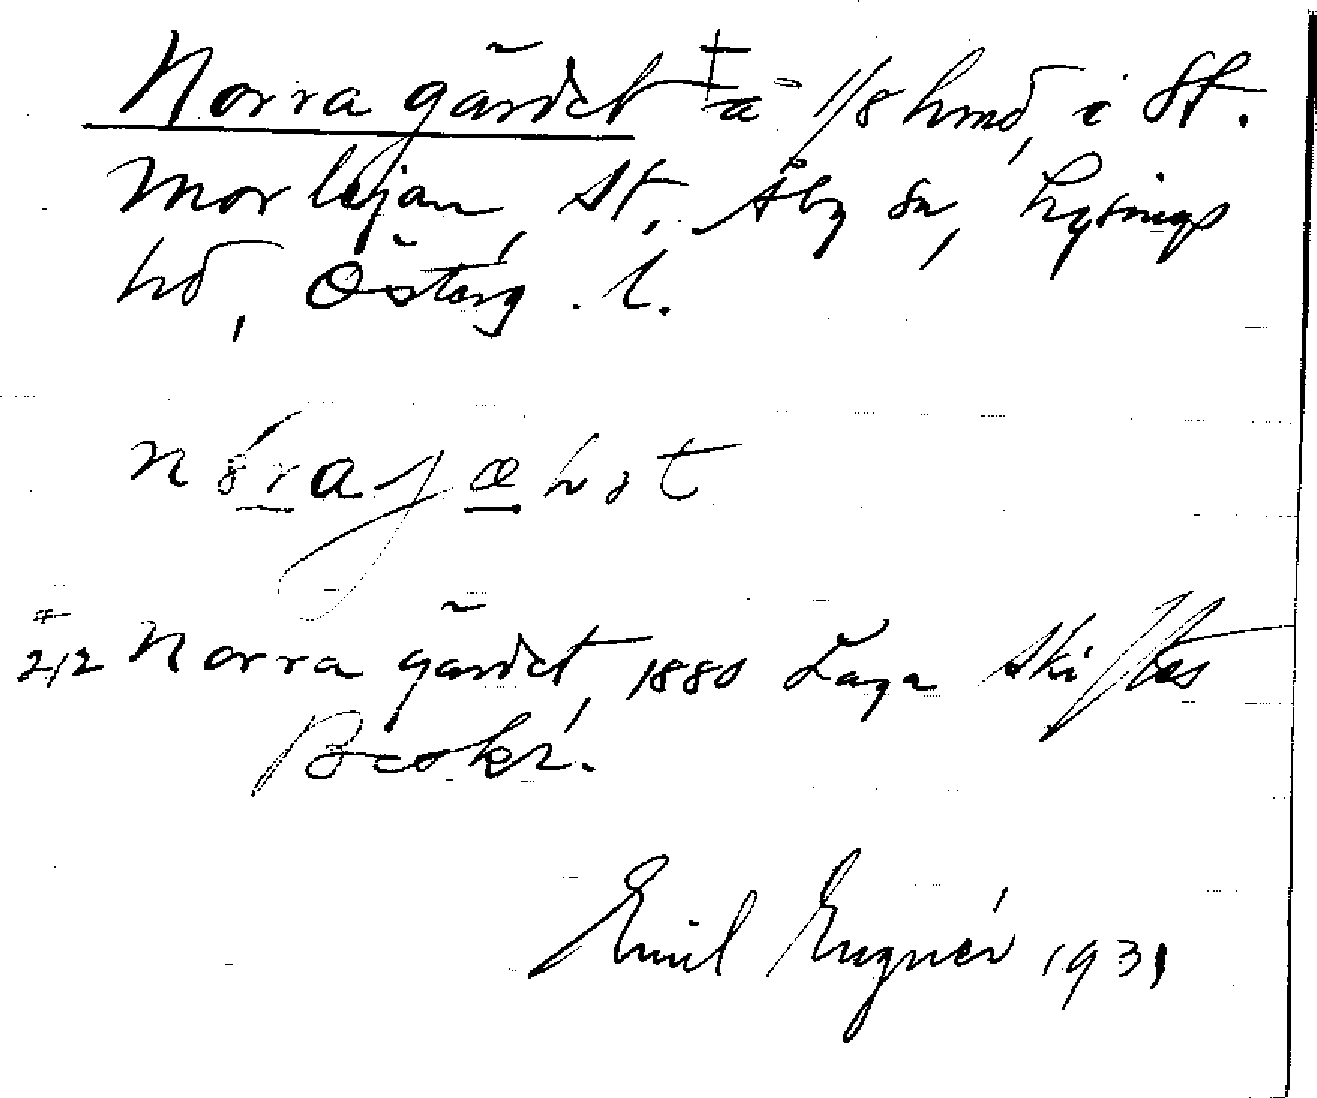 Norra gärdet ‡ å 1/8 hmd, i St.
Morlejan, St. Åby sn, Lysings
hd, Österg. l.
nóra jæhat
242 Norra gärdet, 1880 Laga Skiftes
Beskr.
Emil Engnér 1931